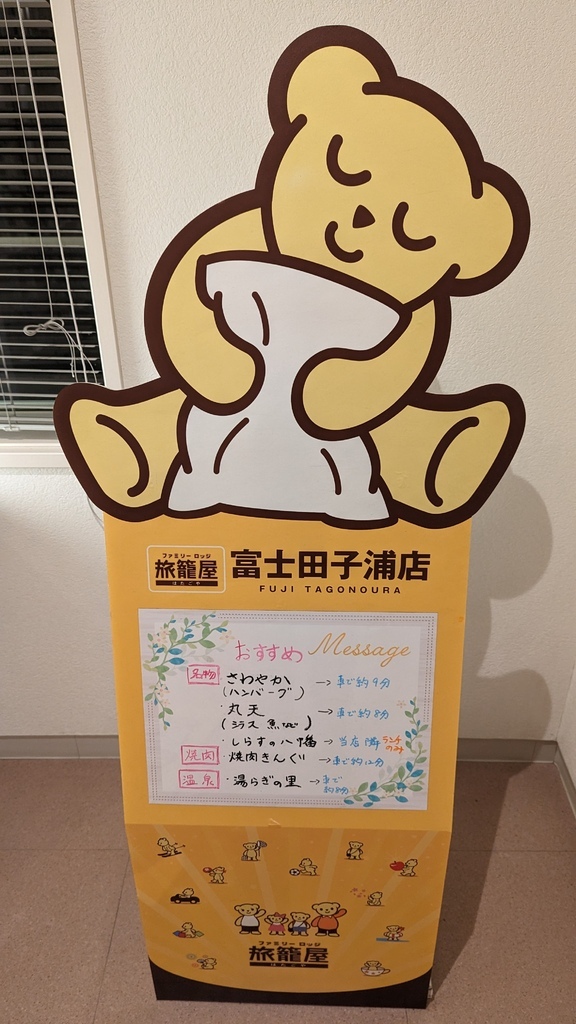 ファミリー ロッジ
旅籠屋
はたごや
富士田子浦店
FUJI TAGONOURA
おすすめ Message
名物 さわやか →車で約9分
(ハンバーグ)
・丸天 →車で約8分
(シラス 魚など)
・しらすの八幡 →当店 隣 ランチのみ
焼肉 ・焼肉きんぐ →車で約12分
温泉 ・湯らぎの里 →車で約8分
ファミリー ロッジ
旅籠屋
はたごや